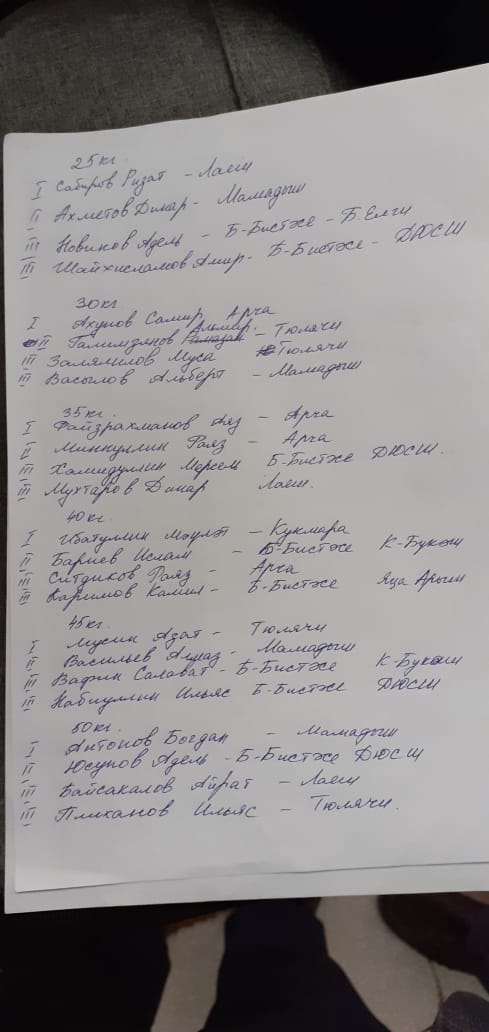 25 кг.
I Сабиров Ризат - Лаеш
II Ахметов Динар - Мамадыш
III Новиков Адель - Б-Бистәсе - Б. Елги
III Шайхисламов Амир - Б-Бистәсе - ДЮСШ
30 кг
I Ахунов Самир, Арча
II Галимзянов Альмир. - Тюлячи
III Залялилов Муса Тюлячи
III Васылов Альберт - Мамадыш
35 кг.
I Файзрахманов Аяз - Арча
II Миннуллин Раяз - Арча
III Хамидуллин Марсель Б-Бистәсе ДЮСШ.
III Мухтаров Динар Лаеш.
40 кг.
I Ибатуллин - Кукмара
II Бариев Ислам - Б-Бистәсе К-Букәш
III Ситдиков Раяз - Арча
III Каримов Камил - Б-Бистәсе Яңа Арыш
45 кг.
I Мусин Азат - Тюлячи
II Васильев Алмаз - Мамадыш
III Вафин Салават - Б-Бистәсе К-Букәш
III Набиуллин Ильяс Б-Бистәсе ДЮСШ
50 кг.
I Антонов Богдан - Мамадыш
II Юсупов Адель - Б-Бистәсе ДЮСШ
III Байсакалов Айрат - Лаеш
III Пликанов Ильяс - Тюлячи.